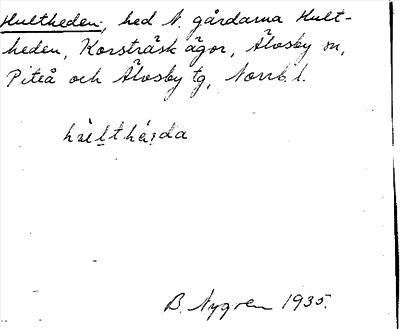 Hultheden, hed N. gårdarna Hult-
heden, Korsträsk ägor, Älvsby sn,
Piteå och Älvsby tg, Norrb. l.
B. Nygren 1935.